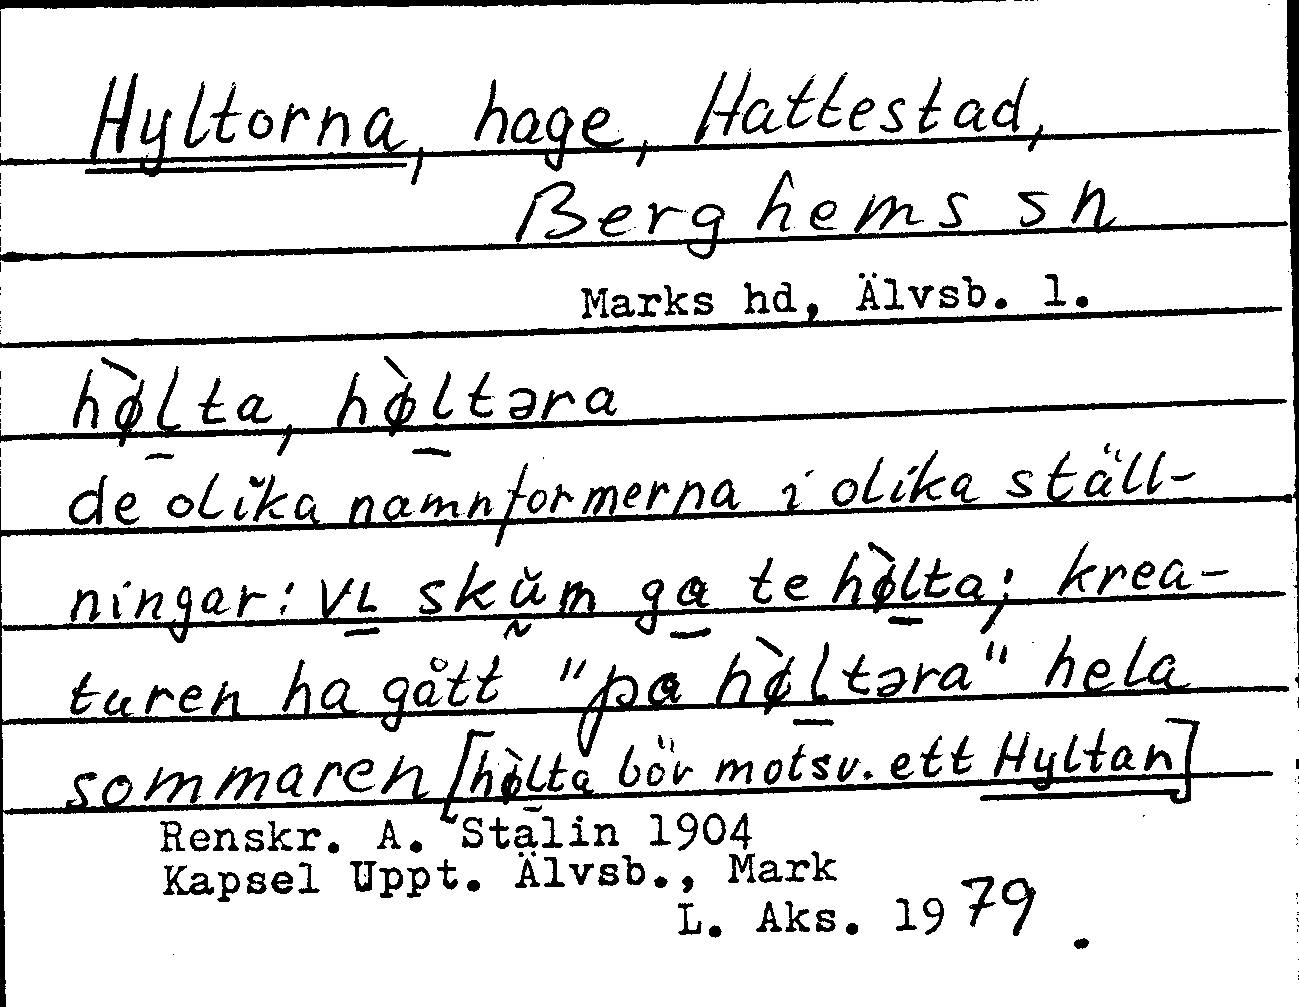 Hyltorna, hage, Hattestad,
Berghems sn
Marks hd, Älvsb. l.
hø̀lta, hø̀ltəra
de olika namnformerna i olika ställ-
ningar: vɩ skŭm ga te hø̀lta; krea-
turen ha gått "pa hø̀ltəra" hela
sommaren [hø̀lta bör motsv. ett Hyltan]
Renskr. A. Stalin 1904
Kapsel Uppt. Älvsb., Mark
L. Aks. 1979.